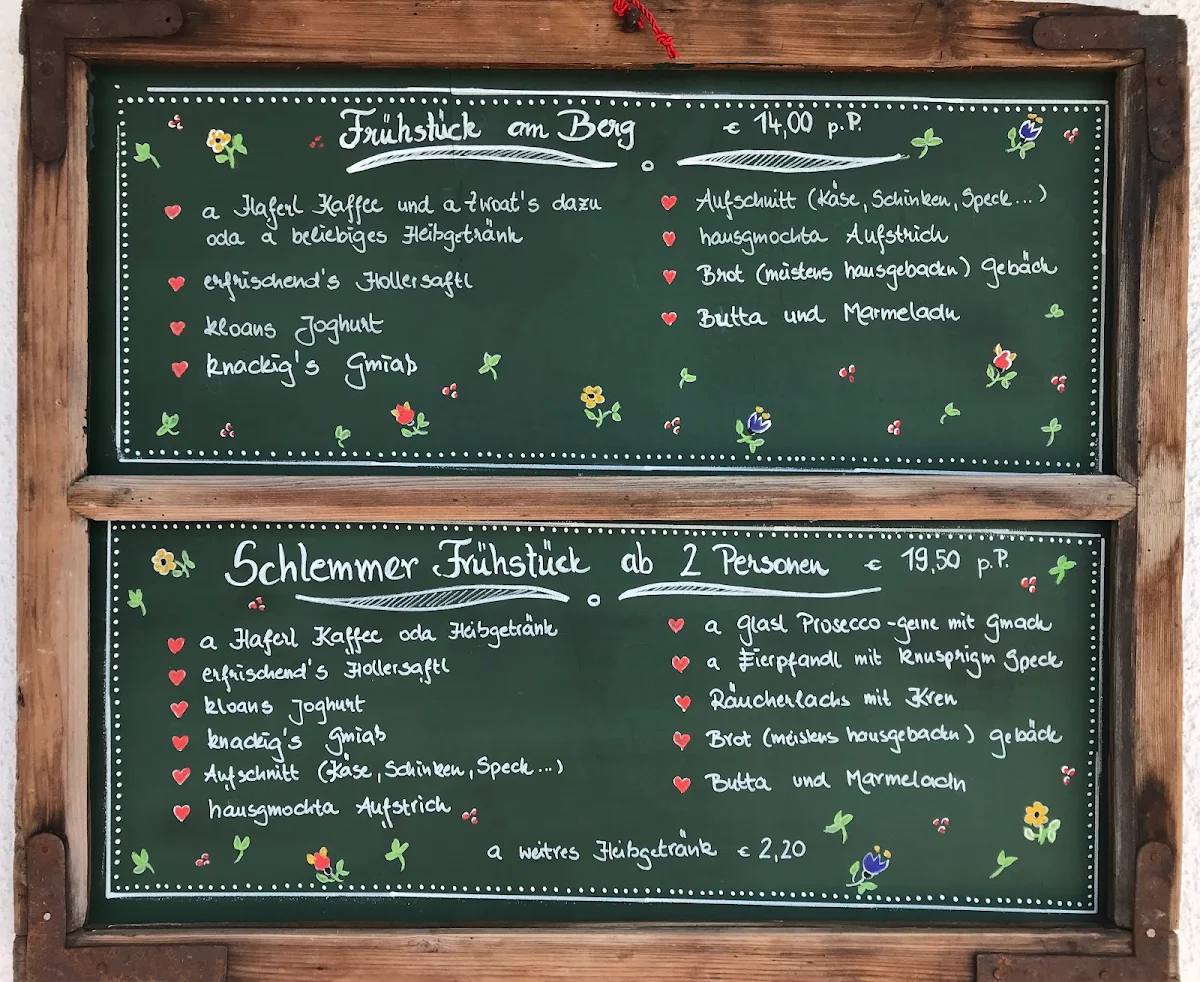 Frühstück am Berg € 14,00 p.P.
a Haferl Kaffee und a zwoat's dazu
oda a beliebiges Heißgetränk
erfrischend's Hollersaftl
kloans Joghurt
knackig's Gmiaß
Aufschnitt (Käse, Schinken, Speck...)
hausgmochta Aufstrich
Brot (meistens hausgebackn) Gebäck
Butta und Marmeladn
Schlemmer Frühstück ab 2 Personen € 19,50 p.P.
a Haferl Kaffee oda Heißgetränk
erfrischend's Hollersaftl
kloans Joghurt
knackig's Gmiaß
Aufschnitt (Käse, Schinken, Speck...)
hausgmochta Aufstrich
a Glasl Prosecco - gerne mit Gmach
a Eierpfandl mit knusprigm Speck
Räucherlachs mit Kren
Brot (meistens hausgebackn) Gebäck
Butta und Marmeladn
a weitres Heißgetränk € 2,20